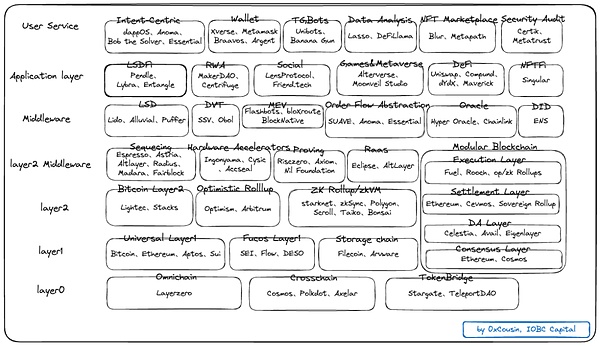 User Service
Intent-Centric
dappOS, Anoma,
Bob the Solver, Essential
Wallet
Xverse, Metamask
Braavos, Argent
TG Bots
Unibots,
Banana Gun
Data Analysis
Lasso, DeFiLlama
NFT Marketplace
Blur, Metapath
Security Audit
Certik,
Metatrust
Application layer
LSDFi
Pendle,
Lybra, Entangle
RWA
MakerDAO,
Centrifuge
Social
LensProtocol,
Friend.tech
Games&Metaverse
Alterverse,
Moonveil Studio
DeFi
Uniswap, Compund,
dYdX, Maverick
NFTFi
Singular
Middleware
LSD
Lido, Alluvial, Puffer
DVT
SSV, Obol
MEV
Flashbots, bloXroute
BlockNative
Order Flow Abstraction
SUAVE, Anoma, Essential
Oracle
Hyper Oracle, Chainlink
DID
ENS
layer2 Middleware
Sequecing
Espresso, Astria,
Altlayer, Radius,
Madara, Fairblock
Hardware Accelerators
Ingonyama, Cysic
, Accseal
Proving
Risczero, Axiom,
Nil Foundation
Raas
Eclipse, AltLayer
Modular Blockchain
Execution Layer
Fuel, Rooch, op/zk Rollups
Settlement Layer
Ethereum, Cevmos, Sovereign Rollup
DA Layer
Celestia, Avail, Eigenlayer
Consensus Layer
Ethereum, Cosmos
layer2
Bitcoin Layer2
Lightec, Stacks
Optimistic Rolllup
Optimism, Arbitrum
ZK Rollup/zkVM
starknet, zkSync, Polygon,
Scroll, Taiko, Bonsai
layer1
Universal Layer1
Bitcoin, Ethereum, Aptos, Sui
Fucos Layer1
SEI, Flow, DESO
Storage chain
Filecoin, Arware
layer0
Omnichain
Layerzero
Crosschain
Cosmos, Polkdot, Axelar
TokenBridge
Stargate, TeleportDAO
by 0xCousin, IOBC Capital